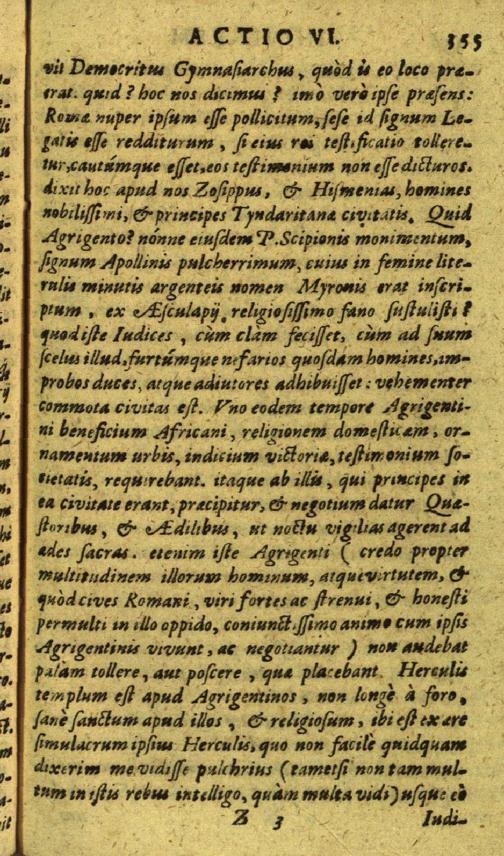 ACTIO VI. 355
vit Democritus Gymnasiarchus, quòd is eo loco præ-
erat. quid? hoc nos dicimus? imò verò ipse præsens:
Romæ nuper ipsum esse pollicitum, sese id signum Le-
gatis esse redditurum, si eius rei testificatio tollere-
tur, cautúmque esset, eos testimonium non esse dicturos.
dixit hoc apud nos Zosippus, & Hismenias, homines
nobilissimi, & principes Tyndaritanæ civitatis. Quid
Agrigento? nónne eiusdem P. Scipionis monimentum,
signum Apollinis pulcherrimum, cuius in femine lite-
rulis minutis argenteis nomen Myronis erat inscri-
ptum, ex Æsculapij religiosissimo fano sustulisti?
quod iste Iudices, cùm clam fecisset, cùm ad suum
scelus illud, furtúmque nefarios quosdam homines, im-
probos duces, atque adiutores adhibuisset: vehementer
commota civitas est. Vno eodem tempore Agrigenti-
ni beneficium Africani, religionem domesticam, or-
namentum urbis, indicium victoriæ, testimonium so-
cietatis, requirebant. itaque ab illis, qui principes in
ea civitate erant, præcipitur, & negotium datur Quæ-
storibus, & Ædilibus, ut noctu vigilias agerent ad
ædes sacras. etenim iste Agrigenti (credo propter
multitudinem illorum hominum, atque virtutem, &
quòd cives Romani, viri fortes ac strenui, & honesti
permulti in illo oppido, coniunctissimo animo cum ipsis
Agrigentinis vivunt, ac negotiantur) non audebat
palam tollere, aut poscere, quæ placebant. Herculis
templum est apud Agrigentinos, non longè à foro,
sanè sanctum apud illos, & religiosum, ibi est ex ære
simulacrum ipsius Herculis, quo non facilè quidquam
dixerim me vidisse pulchrius (tametsi non tam mul-
tum in istis rebus intelligo, quàm multa vidi) usque eò
Z 3 Iudi-